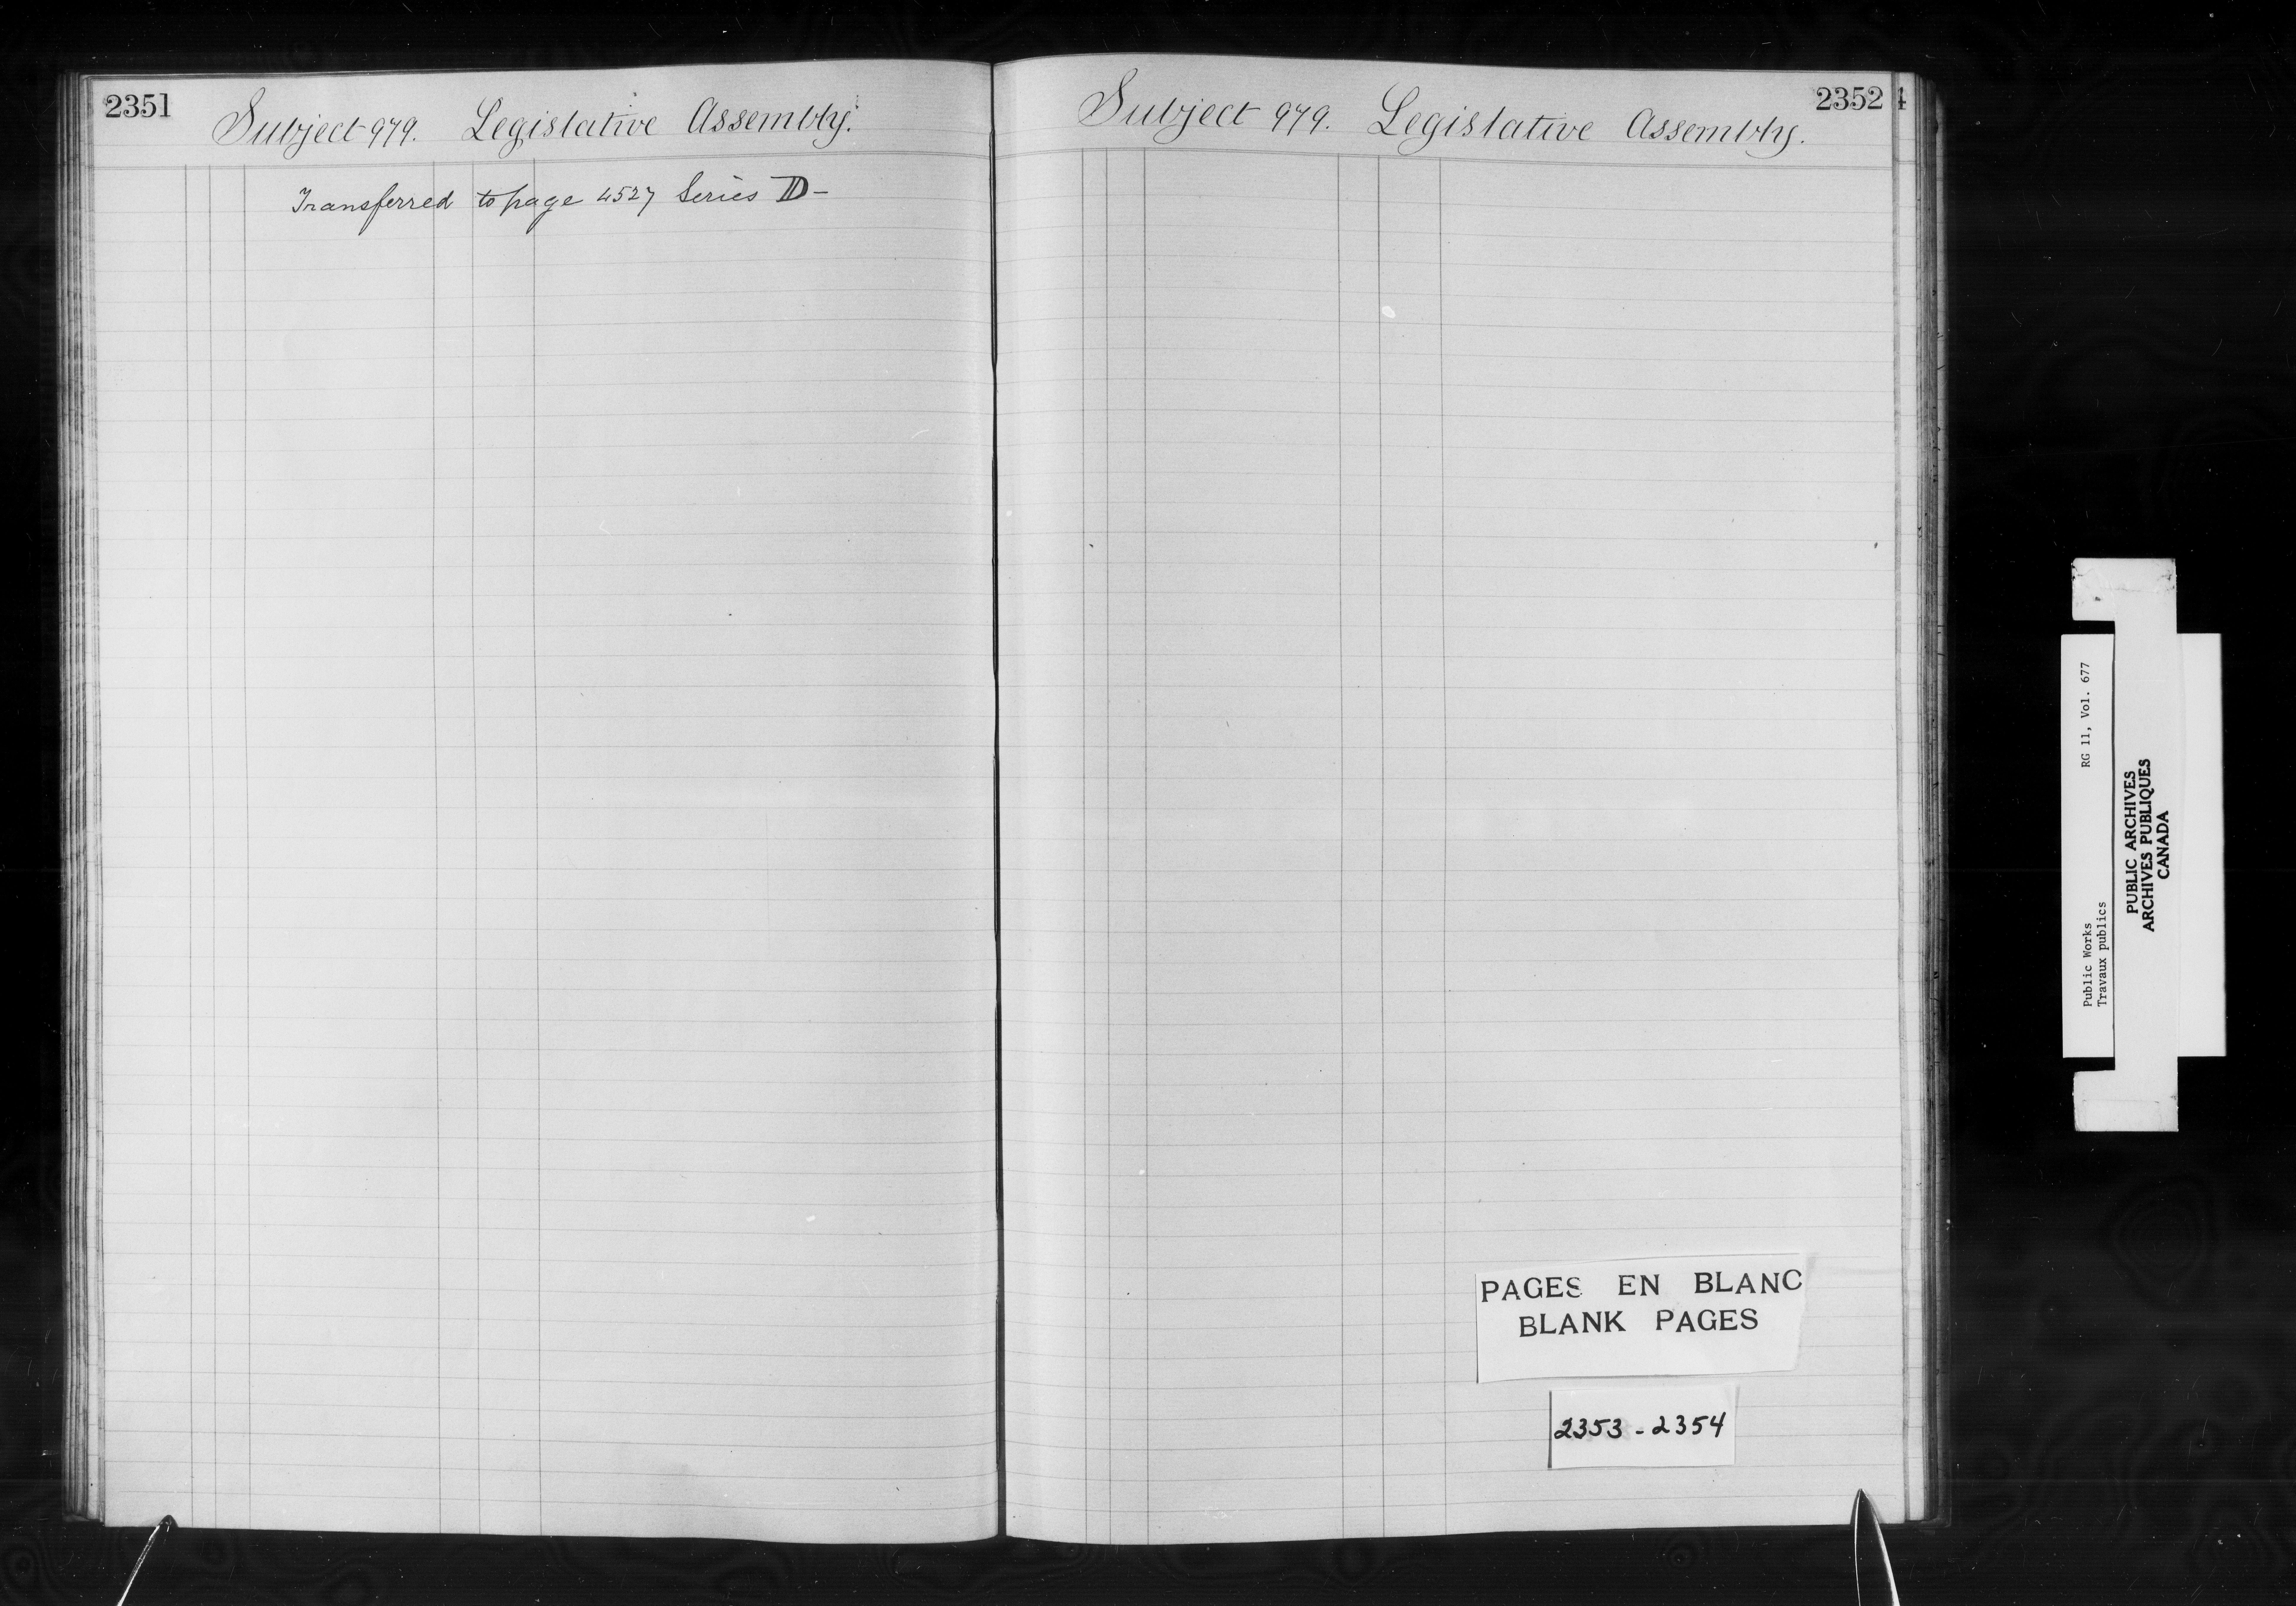 2351
Subject 979. Legislative Assembly.
Transferred to page 4527 Series D-
2352
Subject 979. Legislative Assembly.
4
PAGES EN BLANC
BLANK PAGES
2353-2354
Public Works RG 11, Vol. 677
Travaux publics
PUBLIC ARCHIVES
ARCHIVES PUBLIQUES
CANADA